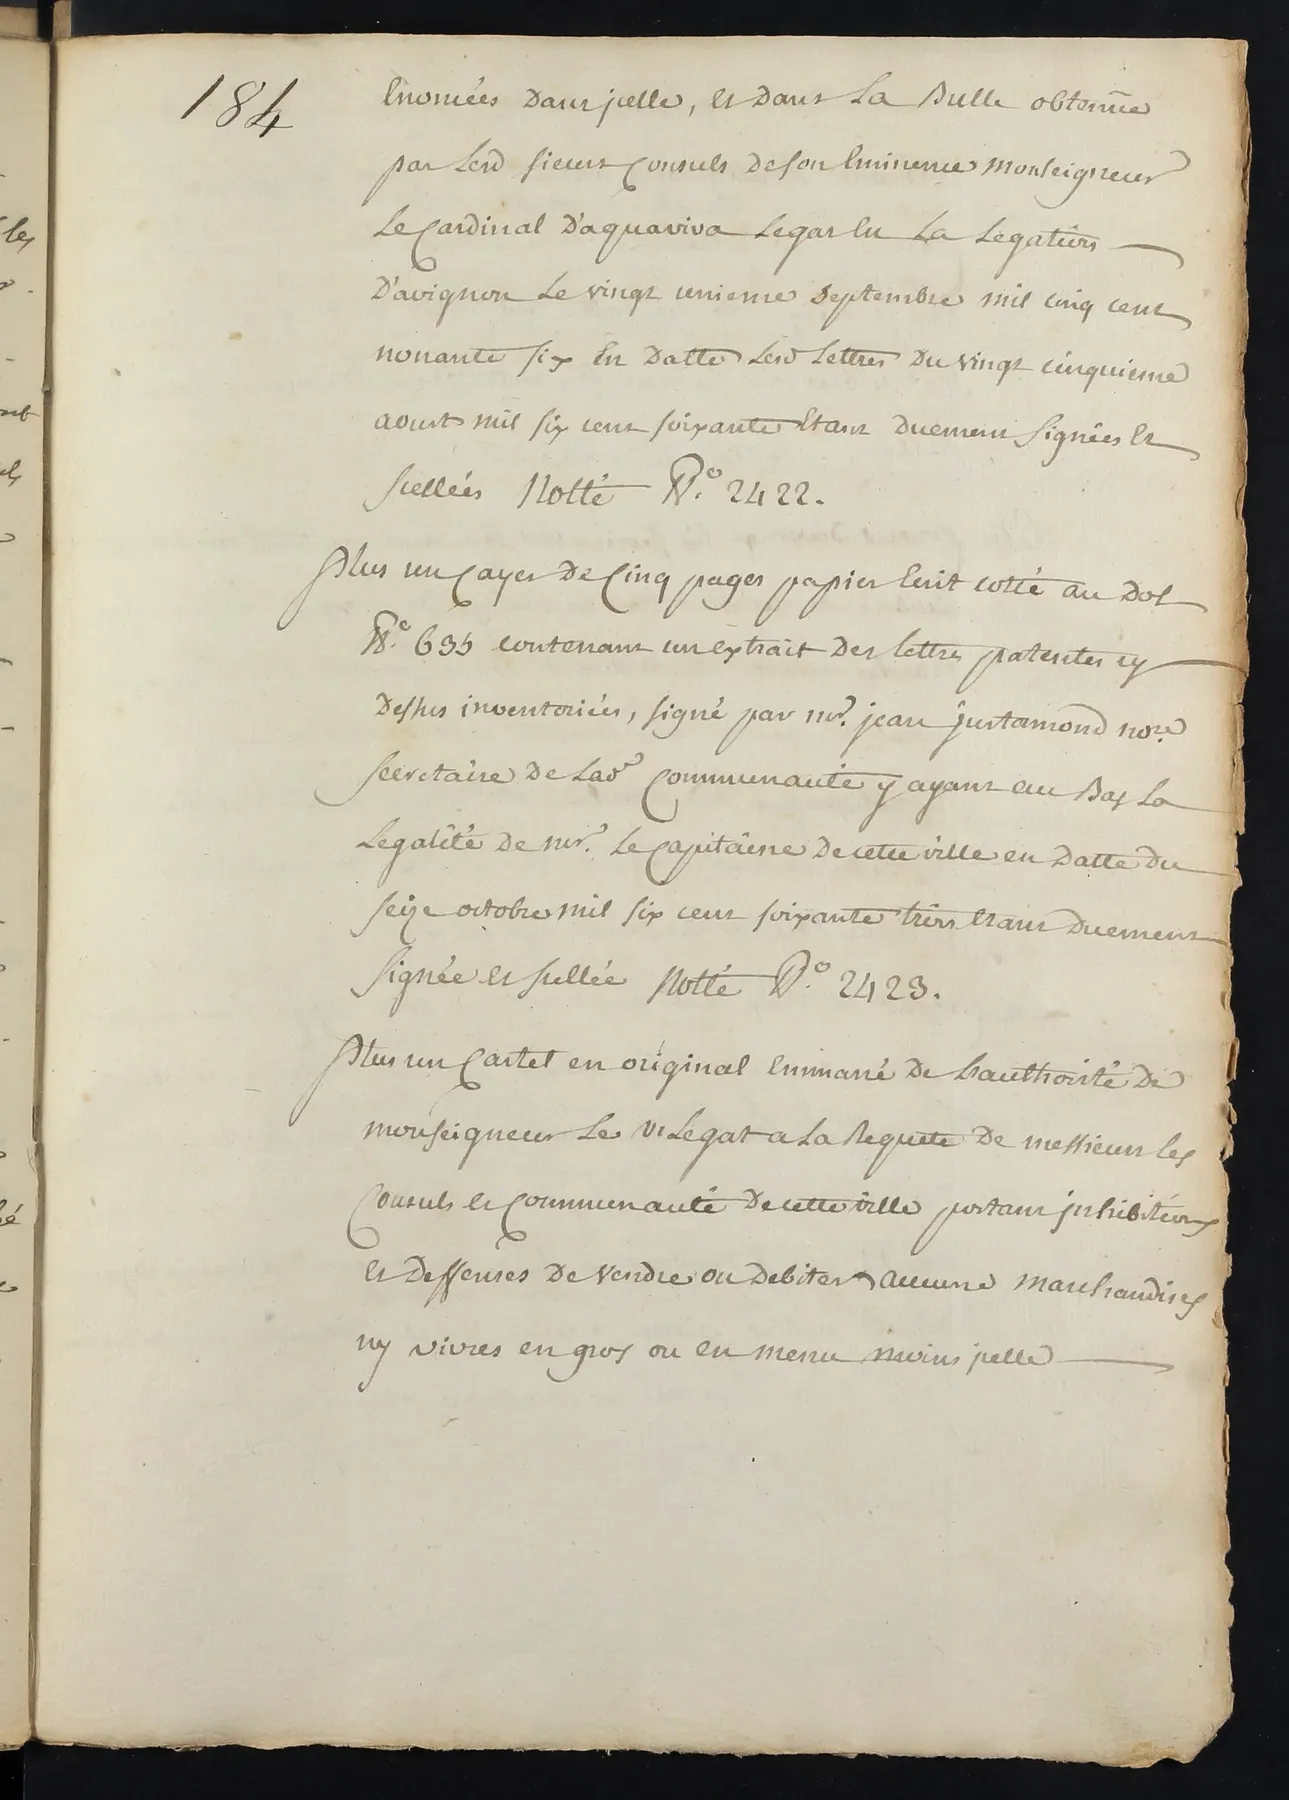 184
Enoncées Dans jcelle, et Dans La Bulle obtenüe
par Lesd sieurs Consuls De son Eminence Monseigneur
Le Cardinal D'aquaviva Legat En La Legation
D'avignon Le vingt unieme Septembre mil cinq cent
nonante six En Datte Lesd Lettres Du vingt cinquieme
aoust mil six cent soixante Etant Duement Signées Et
scellées Notté N.° 2422.
Plus un Cayer De Cinq pages papier Ecrit cotté au Dos
N.° 635 contenant un extrait Des lettres patentes cy
Dessus inventoriées, signé par mr. jean justamond nore
secretaire De Lade Communauté y ayant au Bas La
Legalité De mr. Le Capitaine De cette ville en Datte Du
seize octobre mil six cent soixante trois Etant Duement
Signée et scellée Notté N.° 2423.
Plus un Cartel en original Emmané De L'authorité De
monseigneur Le viLegat a La Requete De messieurs les
Consuls et Communauté De cette ville portant jnhibitions
et Deffenses De vendre ou Debiter aucune marchandises
ny vivres en gros ou en menu moins jcelle
les